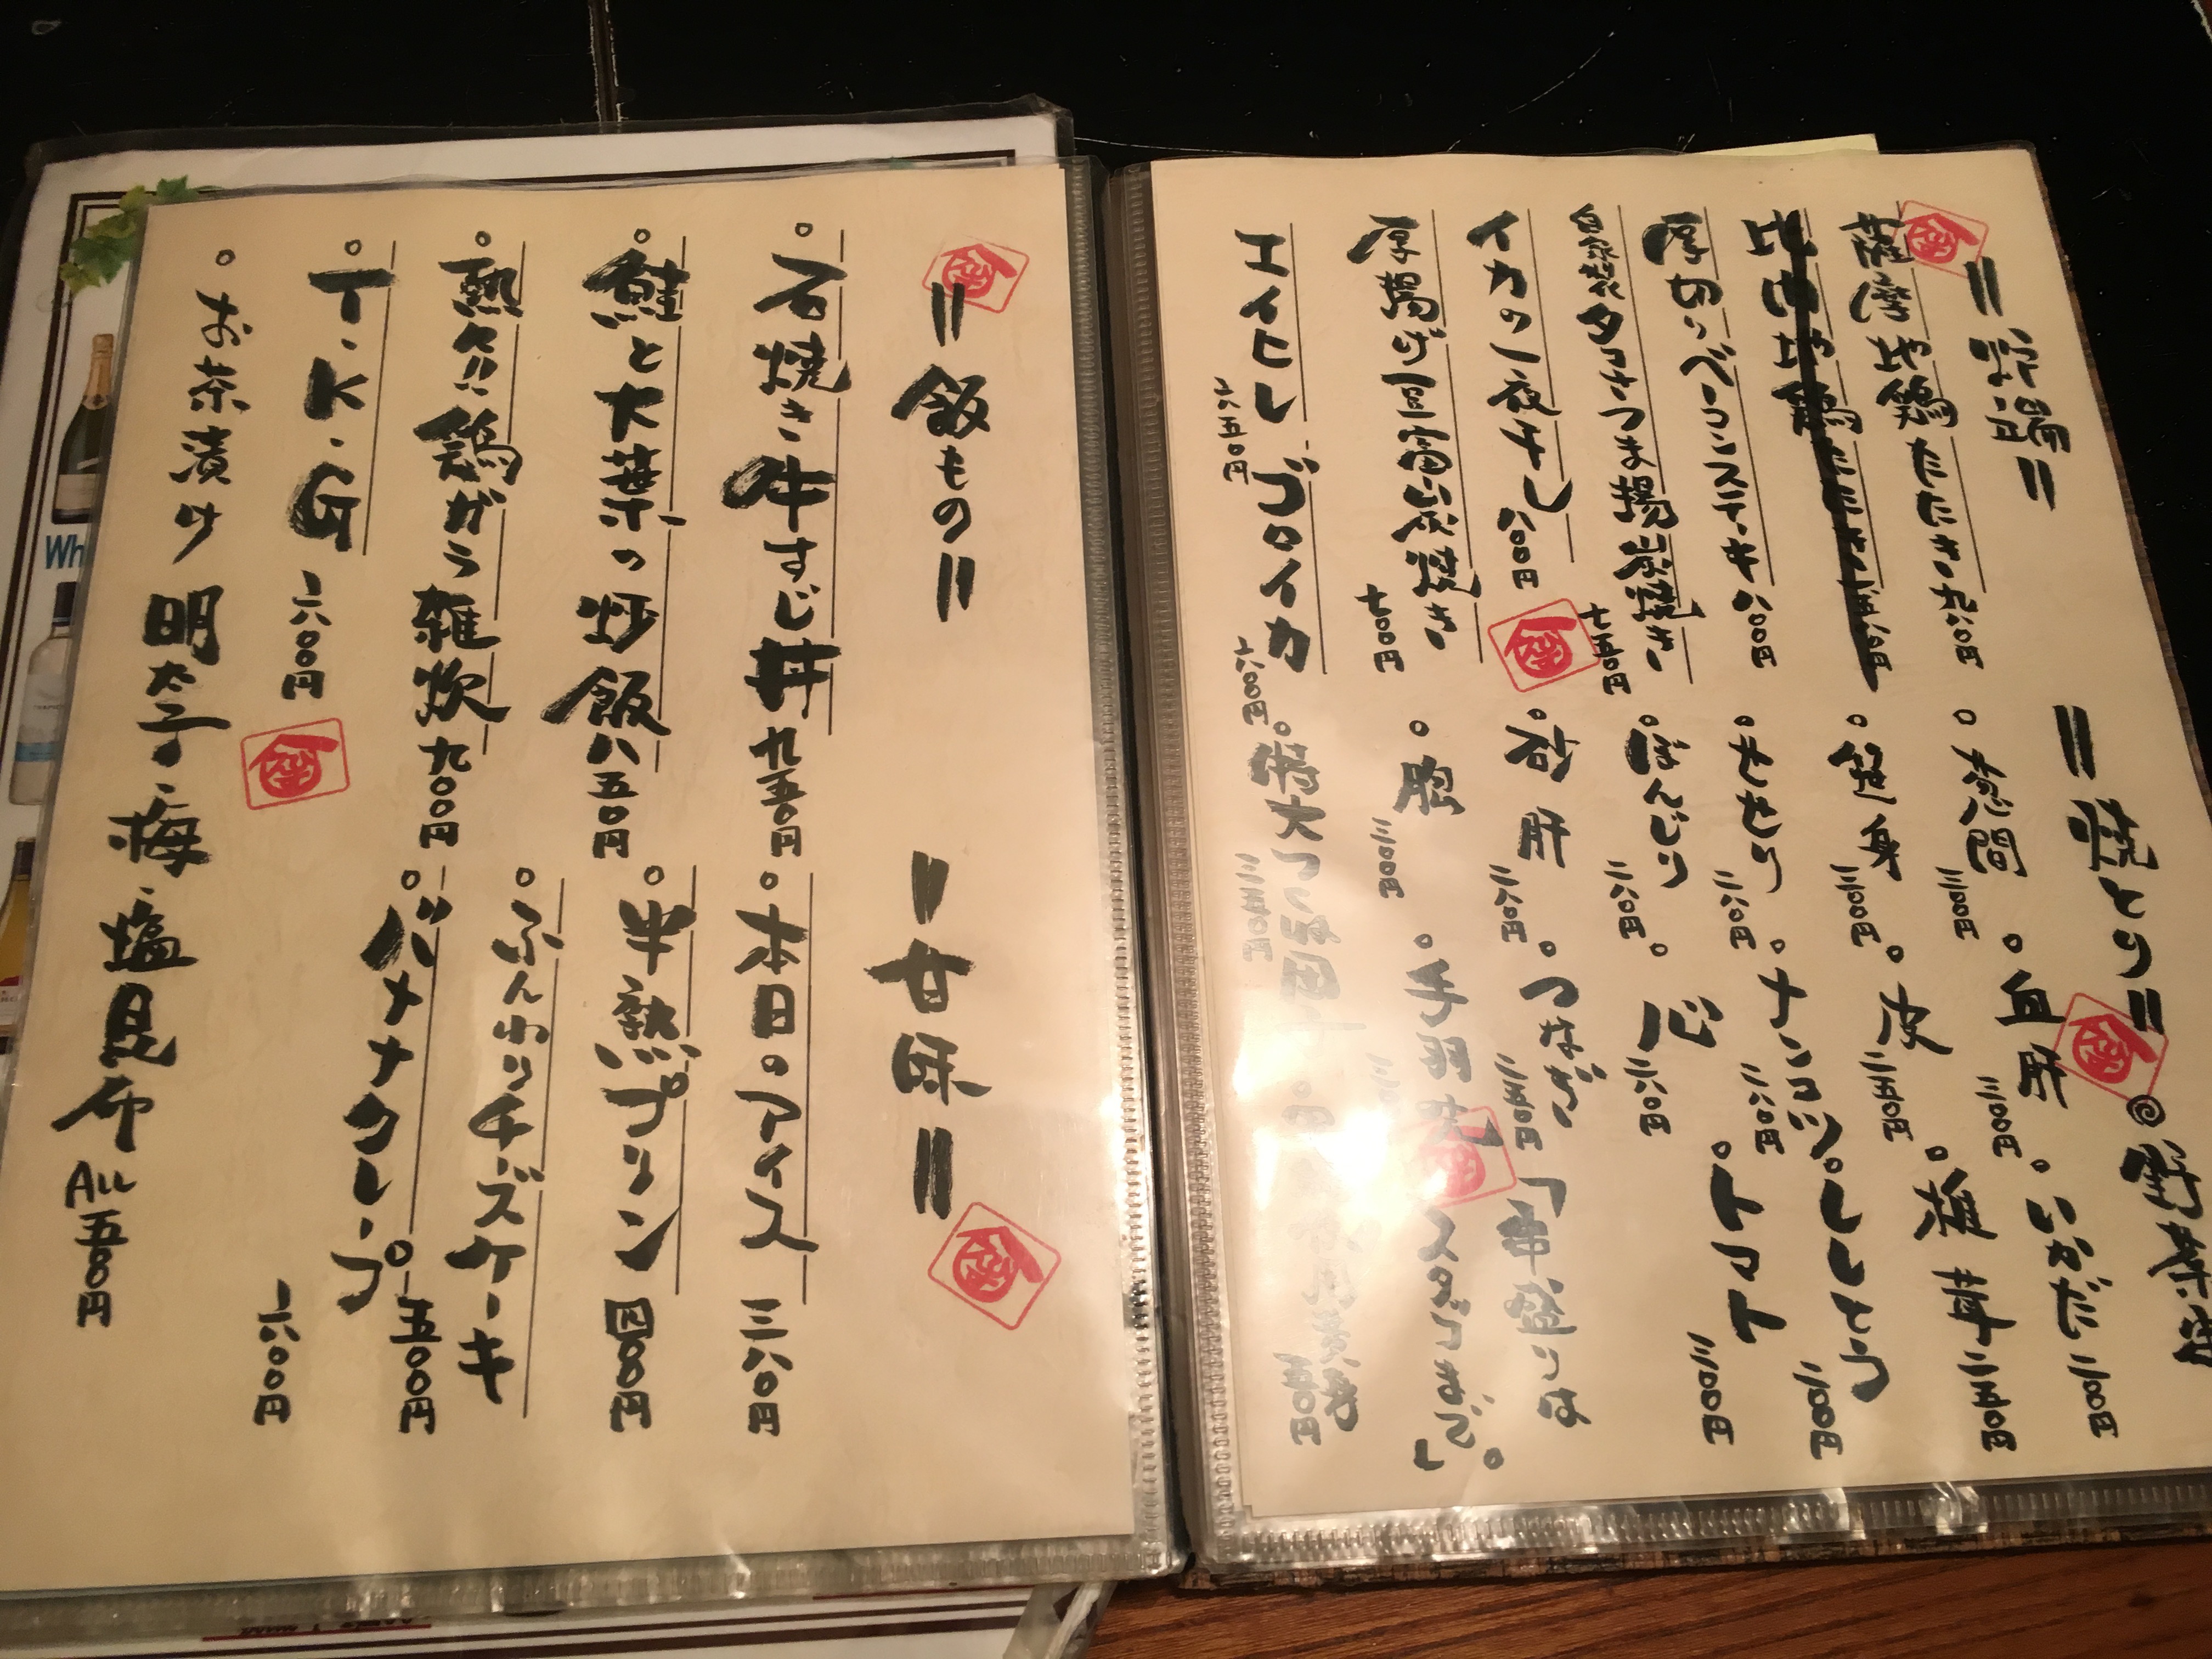 薩摩地鶏たたき 九八〇円
厚切りベーコンステーキ 八〇〇円
自家製タコさつま揚炭焼き 七五〇円
イカの一夜干し 八〇〇円
厚揚げ豆富炭焼き 七〇〇円
エイヒレ 六五〇円
ゴロイカ 六〇〇円
〃焼とり〃
。葱間 三〇〇円
。血肝 三〇〇円
。笹身 三〇〇円
。皮 二五〇円
。せせり 二八〇円
。ナンコツ 二八〇円
。ぼんじり 二八〇円
。心 二八〇円
。砂肝 二八〇円
。つなぎ 二五〇円
。胸 三〇〇円
。手羽先
。特大つくね
◎野菜
。いかだ 二〇〇円
。椎茸 二五〇円
。ししとう 二〇〇円
。トマト 三〇〇円
「串盛りは
スタッフまで」。
〃飯もの〃
。石焼き牛すじ丼 九五〇円
。鮭と大葉の炒飯 八五〇円
。熱々!!鶏がら雑炊 九〇〇円
。T.K.G 六〇〇円
。お茶漬け 明太子・梅・塩昆布 ALL五〇〇円
〃甘味〃
。本日。アイス 三八〇円
。半熟プリン 四〇〇円
。ふんわりチーズケーキ 五〇〇円
。バナナクレープ 六〇〇円